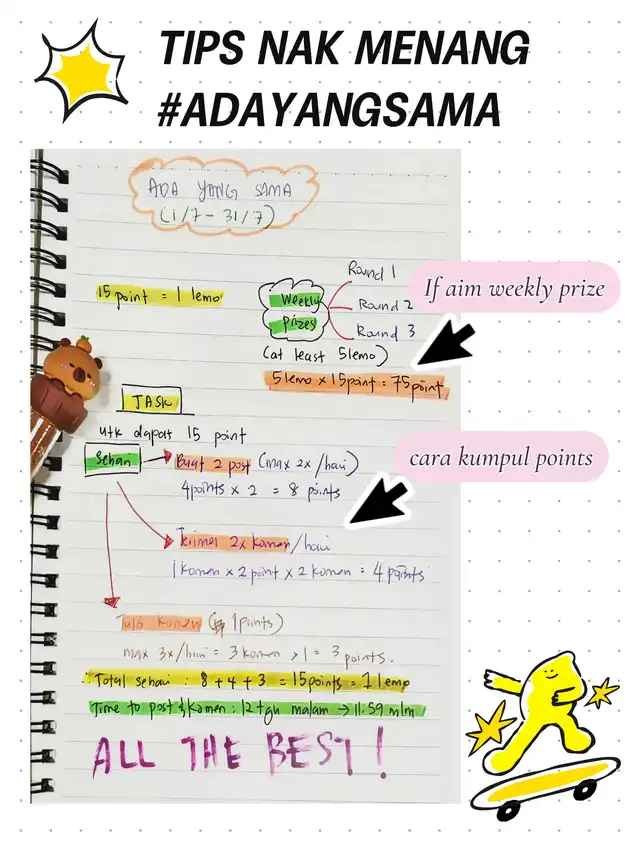 TIPS NAK MENANG
#ADAYANGSAMA
ADA YANG SAMA
(1/7 - 31/7)
15 point = 1 lemo
Weekly
prizes
Round 1
Round 2
Round 3
(at least 5 lemo)
5 lemo × 15 point = 75 point
If aim weekly prize
TASK
utk dapat 15 point
Sehari
Buat 2 post (max 2x/hari)
4 points × 2 = 8 points
cara kumpul points
Terima 2x komen/hari
1 komen × 2 point × 2 komen = 4 points
Tulis komen (1 points)
max 3x/hari = 3 komen × 1 = 3 points.
∴ Total sehari : 8 + 4 + 3 = 15 points = 1 lemo
Time to post & komen : 12 tgh malam → 11.59 mlm
ALL THE BEST!